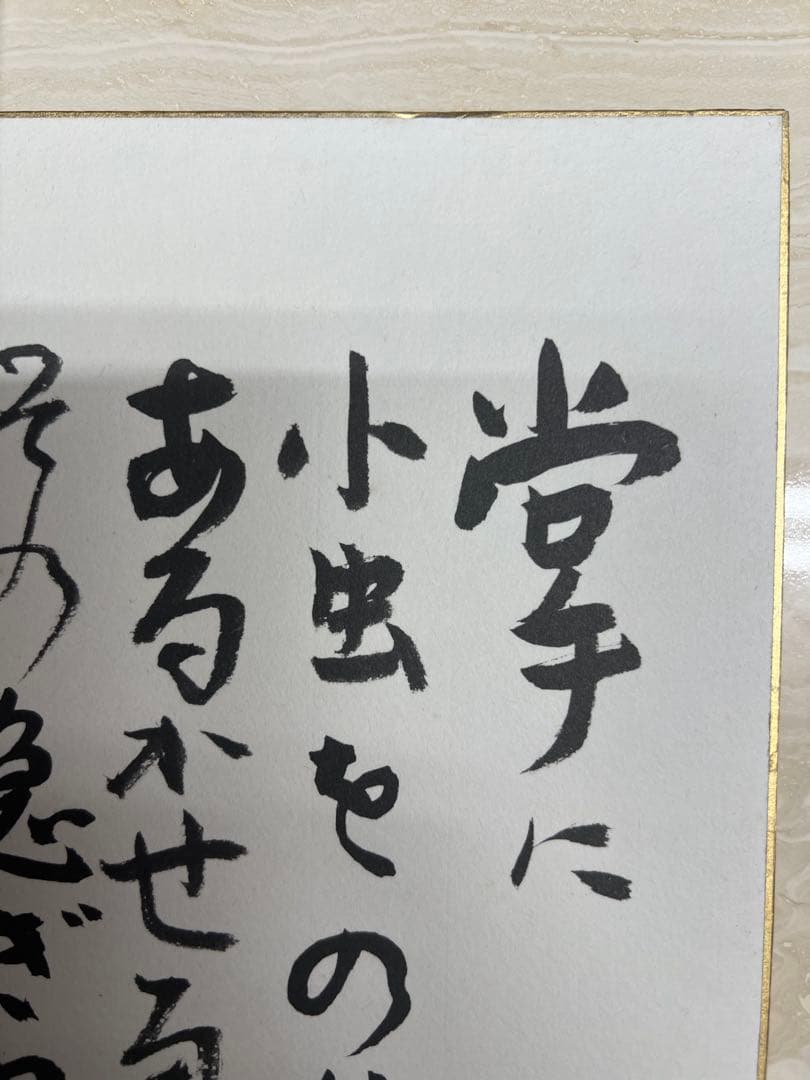 掌に
小虫をの
あるかせる
その急ぎ